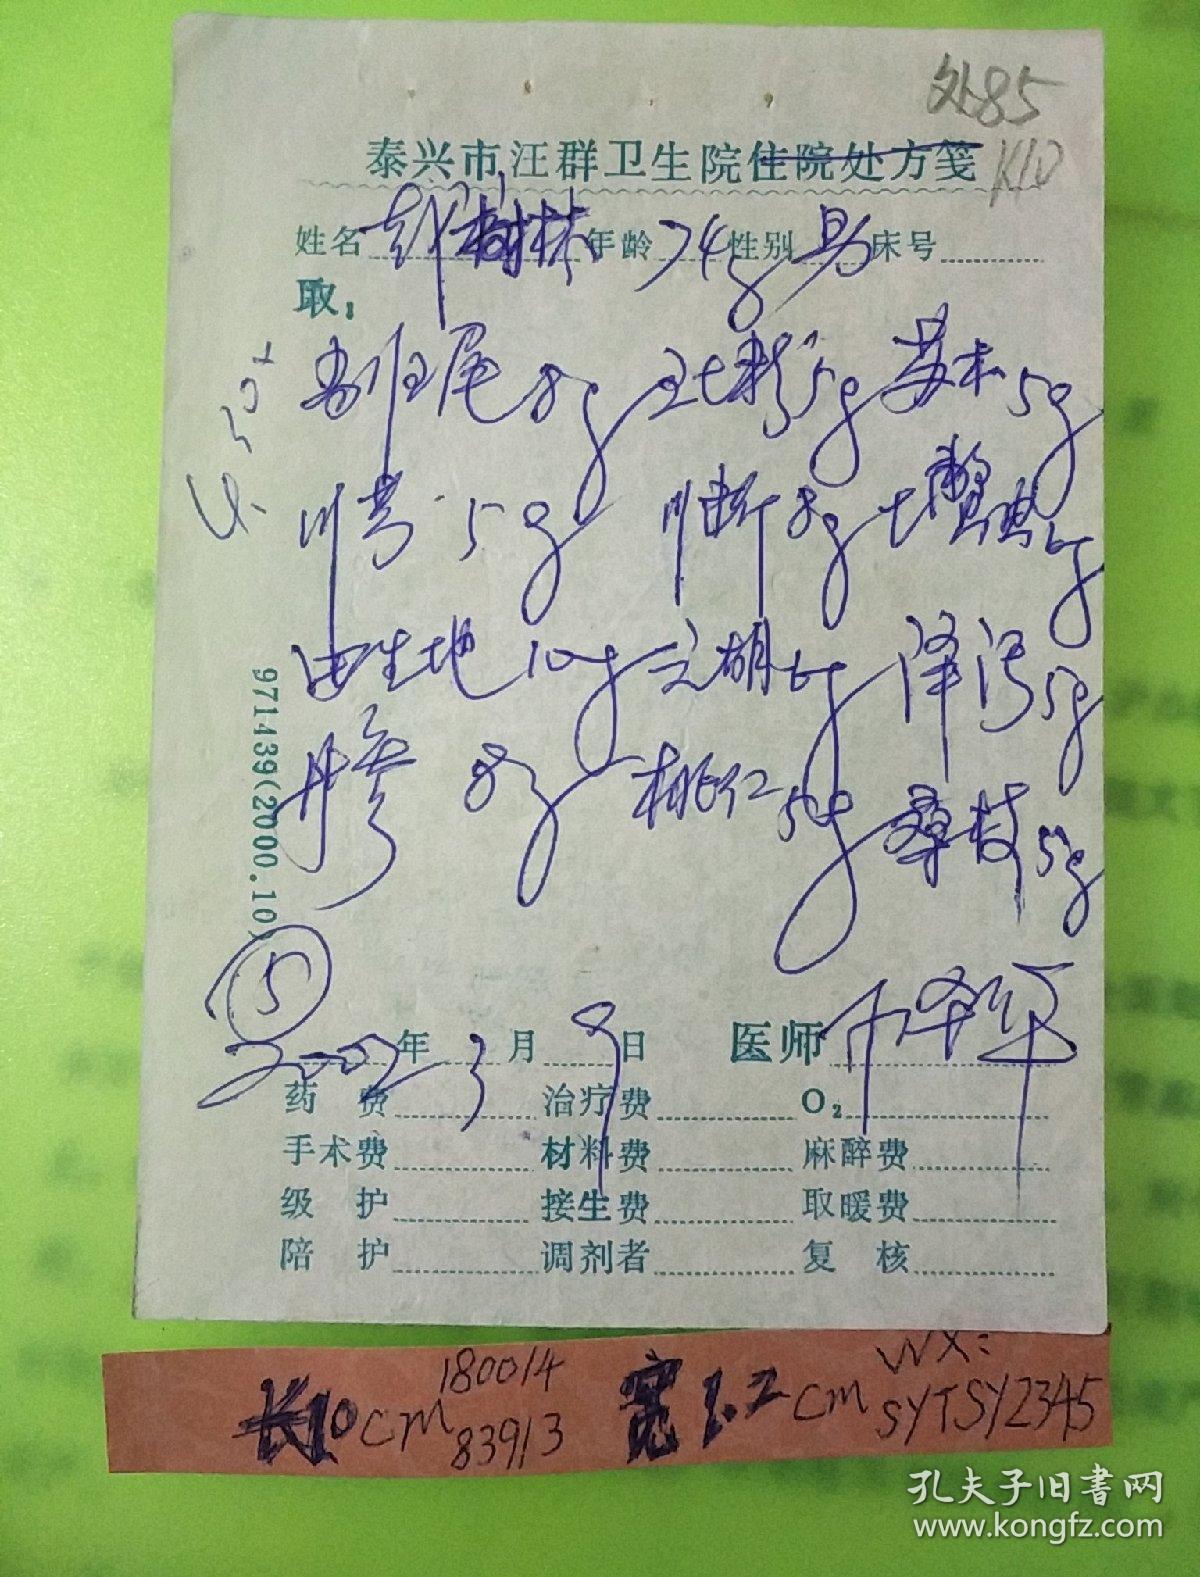 处85
泰兴市汪群卫生院住院处方笺 K10
姓名 树林 年龄 74岁 性别 男 床号
取:
当归尾 8g 红花 5g 苏木 5g
川芎 5g 川断 8g 土鳖虫 6g
生地 10g 元胡 6g 泽泻 5g
丹参 8g 桃仁 5g 桑枝 5g
971439(2000.10)
⑤
2002年3月9日 医师
药费 治疗费 O₂
手术费 材料费 麻醉费
级护 接生费 取暖费
陪护 调剂者 复核
长10CM 180014 83913 宽1.2CM WX: SYTSY2345
孔夫子旧书网
www.kongfz.com